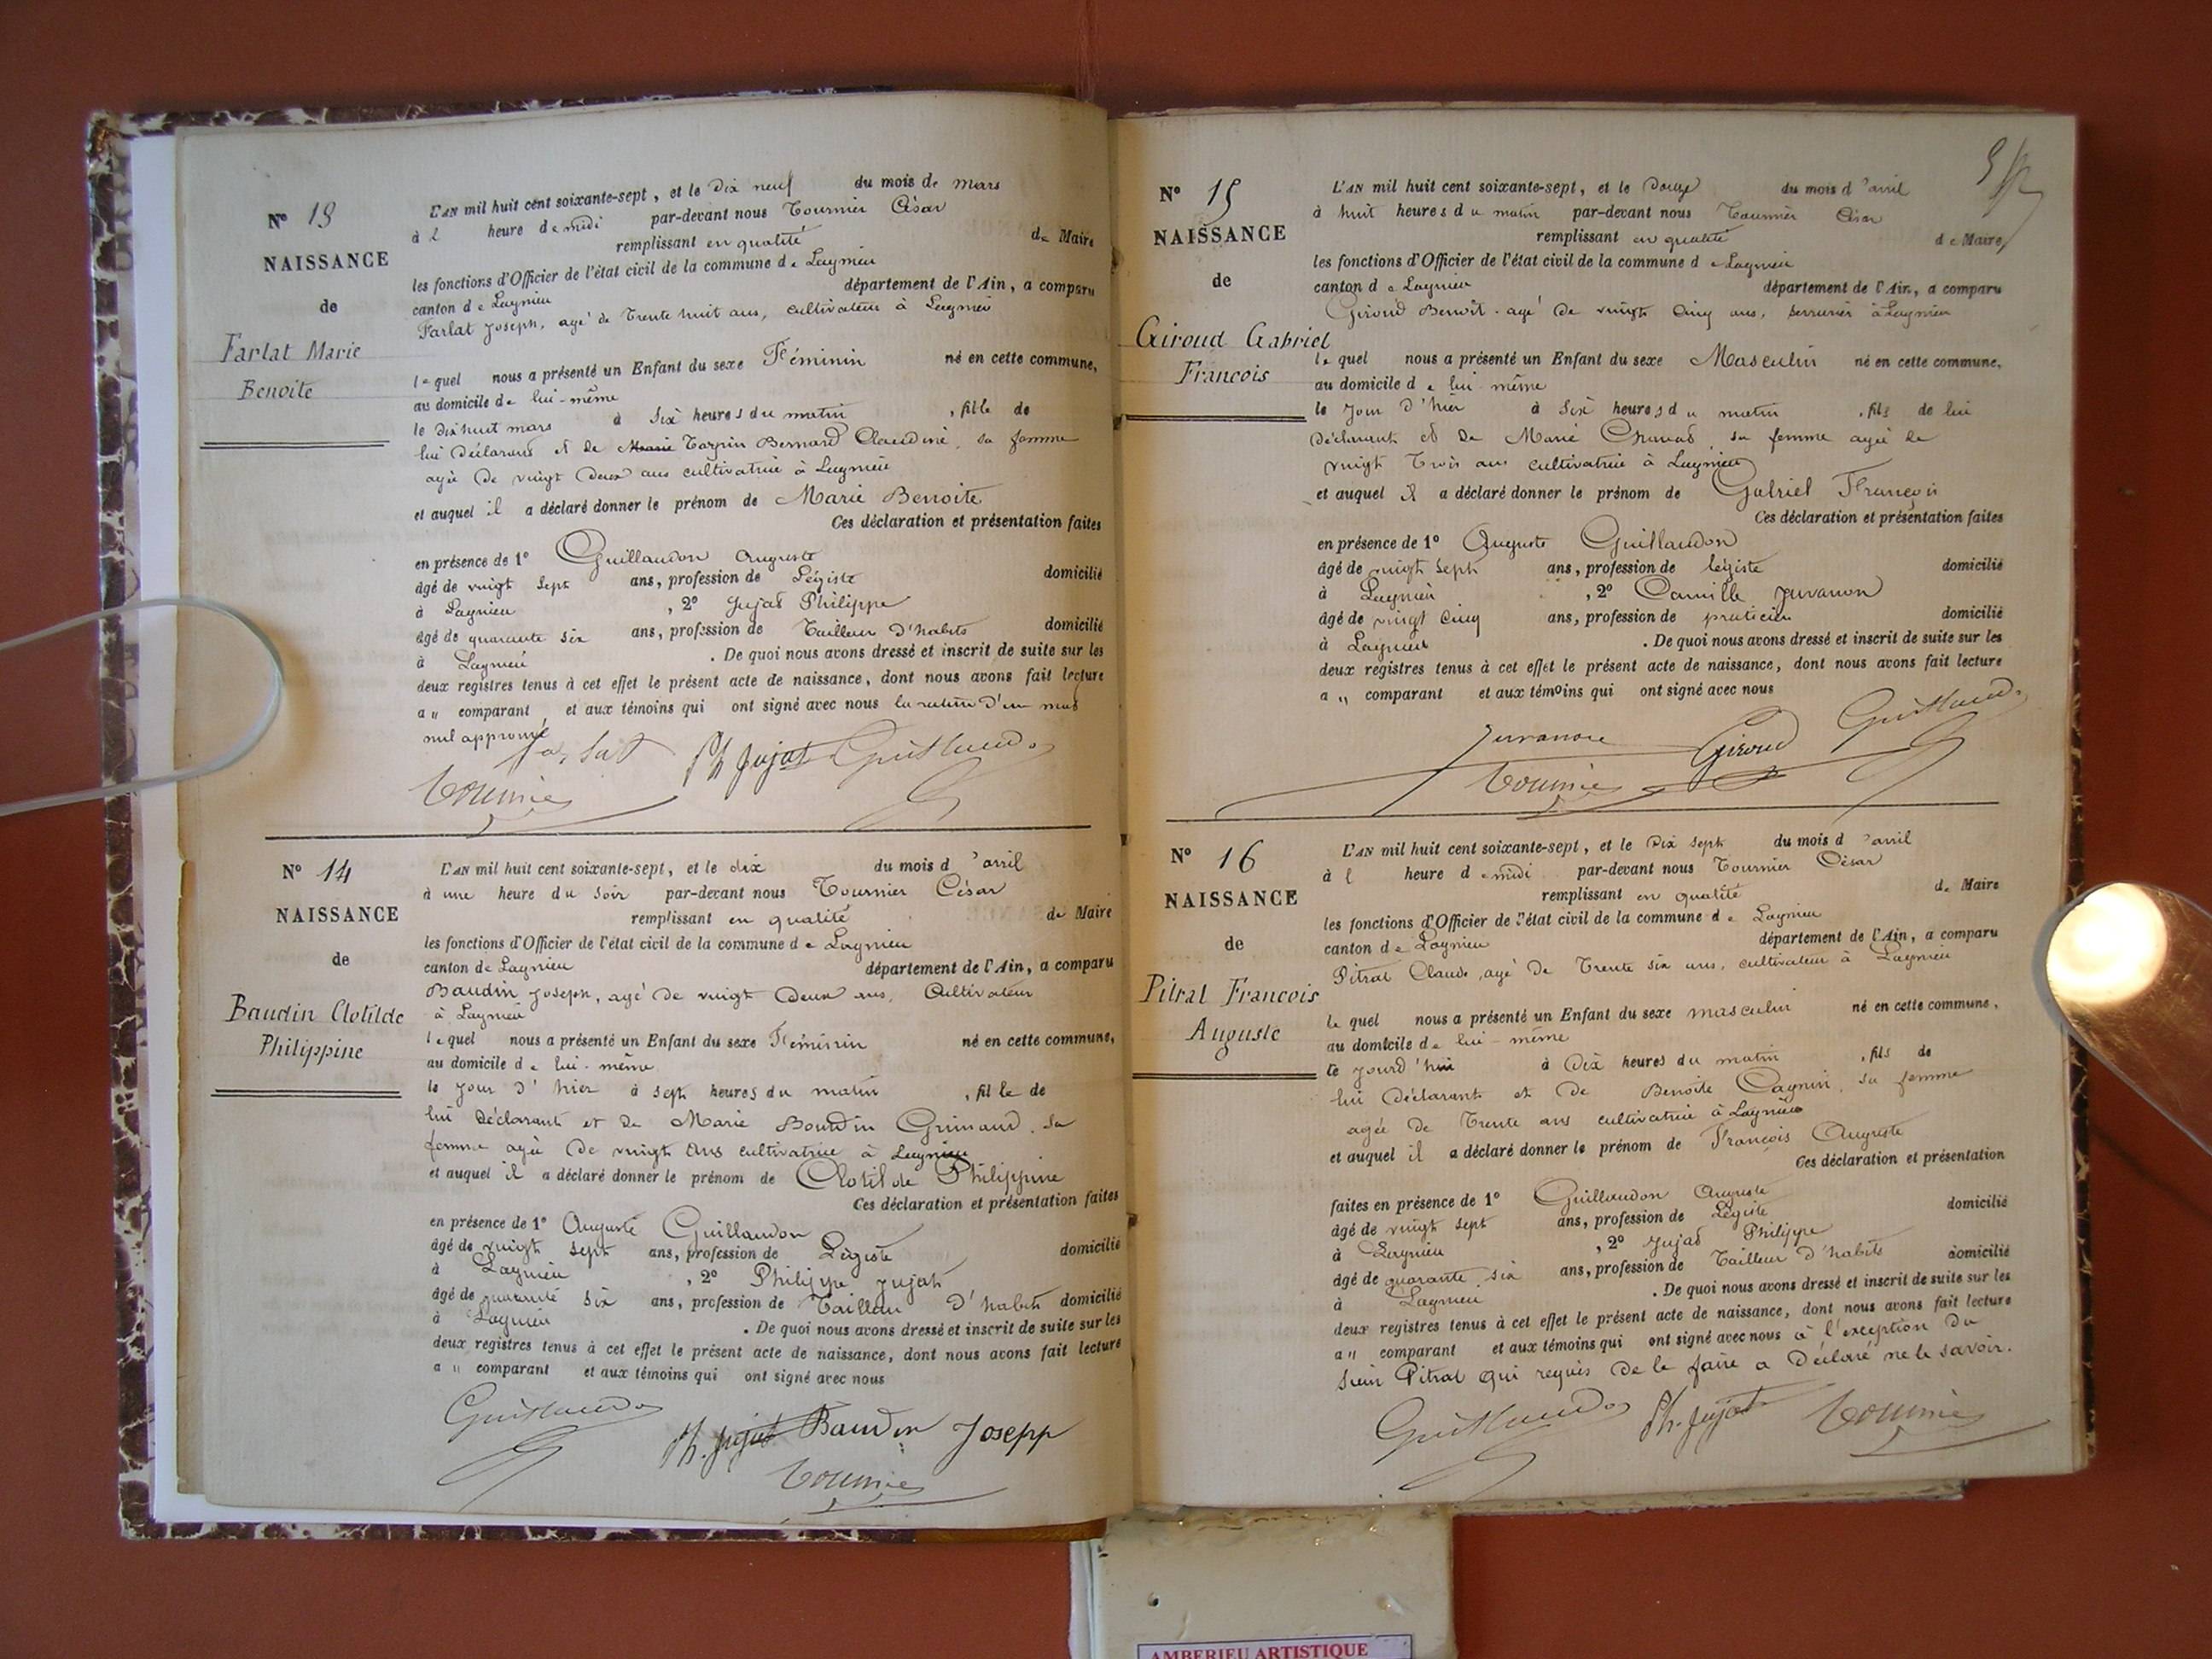 N° 13
NAISSANCE
de
Farlat Marie
Benoite
L'AN mil huit cent soixante-sept, et le Dix neuf du mois de mars
à l heure de midi par-devant nous Tournier César
remplissant en qualité de Maire
les fonctions d'Officier de l'état civil de la commune de Lagnieu
canton de Lagnieu département de l'Ain, a comparu
Farlat Joseph, agé de Trente huit ans, cultivateur à Lagnieu
lequel nous a présenté un Enfant du sexe Féminin né en cette commune,
au domicile de lui-même
le dix huit mars à Six heures du matin, fille de
lui Déclarant et de Marie Tarpin Bernard Claudine, sa femme
agée de vingt Deux ans cultivatrice à Lagnieu
et auquel il a déclaré donner le prénom de Marie Benoite
Ces déclaration et présentation faites
en présence de 1° Guillaudon Auguste
âgé de vingt Sept ans, profession de Légiste domicilié
à Lagnieu, 2° Jujat Philippe
âgé de quarante six ans, profession de Tailleur d'habits domicilié
à Lagnieu. De quoi nous avons dressé et inscrit de suite sur les
deux registres tenus à cet effet le présent acte de naissance, dont nous avons fait lecture
a " comparant et aux témoins qui ont signé avec nous la rature d'un mot
nul approuvé
farlat Ph Jujat Guillaudon
Tournier
N° 14
NAISSANCE
de
Baudin Clotilde
Philippine
L'AN mil huit cent soixante-sept, et le dix du mois d'avril
à une heure du soir par-devant nous Tournier César
remplissant en qualité de Maire
les fonctions d'Officier de l'état civil de la commune de Lagnieu
canton de Lagnieu département de l'Ain, a comparu
Baudin Joseph, agé de vingt Deux ans, Cultivateur
à Lagnieu
lequel nous a présenté un Enfant du sexe Féminin né en cette commune,
au domicile de lui-même
le jour d'hier à sept heures du matin, fille de
lui Déclarant et de Marie Bourdin Grimaud, sa
femme agée de vingt ans cultivatrice à Lagnieu
et auquel il a déclaré donner le prénom de Clotilde Philippine
Ces déclaration et présentation faites
en présence de 1° Auguste Guillaudon
âgé de vingt sept ans, profession de Légiste domicilié
à Lagnieu, 2° Philippe Jujat
âgé de quarante six ans, profession de Tailleur d'habits domicilié
à Lagnieu. De quoi nous avons dressé et inscrit de suite sur les
deux registres tenus à cet effet le présent acte de naissance, dont nous avons fait lecture
a " comparant et aux témoins qui ont signé avec nous
Guillaudon
Ph. Jujat Baudin Josepp
Tournier
N° 15
NAISSANCE
de
Giroud Gabriel
Francois
L'AN mil huit cent soixante-sept, et le Douze du mois d'avril
à huit heures du matin par-devant nous Tournier César
remplissant en qualité de Maire
les fonctions d'Officier de l'état civil de la commune de Lagnieu
canton de Lagnieu département de l'Ain, a comparu
Giroud Benoit. agé de vingt Cinq ans, serrurier à Lagnieu
lequel nous a présenté un Enfant du sexe Masculin né en cette commune,
au domicile de lui-même
le Jour d'hier à Six heures du matin, fils de lui
Déclarant et de Marie Chavas, sa femme agée de
vingt Trois ans cultivatrice à Lagnieu
et auquel il a déclaré donner le prénom de Gabriel François
Ces déclaration et présentation faites
en présence de 1° Auguste Guillaudon
âgé de vingt Sept ans, profession de légiste domicilié
à Lagnieu, 2° Camille Juvanon
âgé de vingt Cinq ans, profession de praticien domicilié
à Lagnieu. De quoi nous avons dressé et inscrit de suite sur les
deux registres tenus à cet effet le présent acte de naissance, dont nous avons fait lecture
a " comparant et aux témoins qui ont signé avec nous
Juvanon Giroud Guillaudon
Tournier
N° 16
NAISSANCE
de
Pitrat Francois
Auguste
L'AN mil huit cent soixante-sept, et le Dix sept du mois d'avril
à l heure de midi par-devant nous Tournier César
remplissant en qualité de Maire
les fonctions d'Officier de l'état civil de la commune de Lagnieu
canton de Lagnieu département de l'Ain, a comparu
Pitrat Claude, agé de Trente six ans, cultivateur à Lagnieu
lequel nous a présenté un Enfant du sexe masculin né en cette commune,
au domicile de lui-même
le jourd'hui à Dix heures du matin, fils de
lui Déclarant et de Benoite Cagnin, sa femme
agée de Trente ans cultivatrice à Lagnieu
et auquel il a déclaré donner le prénom de François Auguste
Ces déclaration et présentation
faites en présence de 1° Guillaudon Auguste
âgé de vingt sept ans, profession de Légiste domicilié
à Lagnieu, 2° Jujat Philippe
âgé de quarante six ans, profession de Tailleur d'habits domicilié
à Lagnieu. De quoi nous avons dressé et inscrit de suite sur les
deux registres tenus à cet effet le présent acte de naissance, dont nous avons fait lecture
a " comparant et aux témoins qui ont signé avec nous à l'exception du
sieur Pitrat qui requis de le faire a Déclaré ne le savoir.
Guillaudon Ph. Jujat Tournier
AMBERIEU ARTISTIQUE